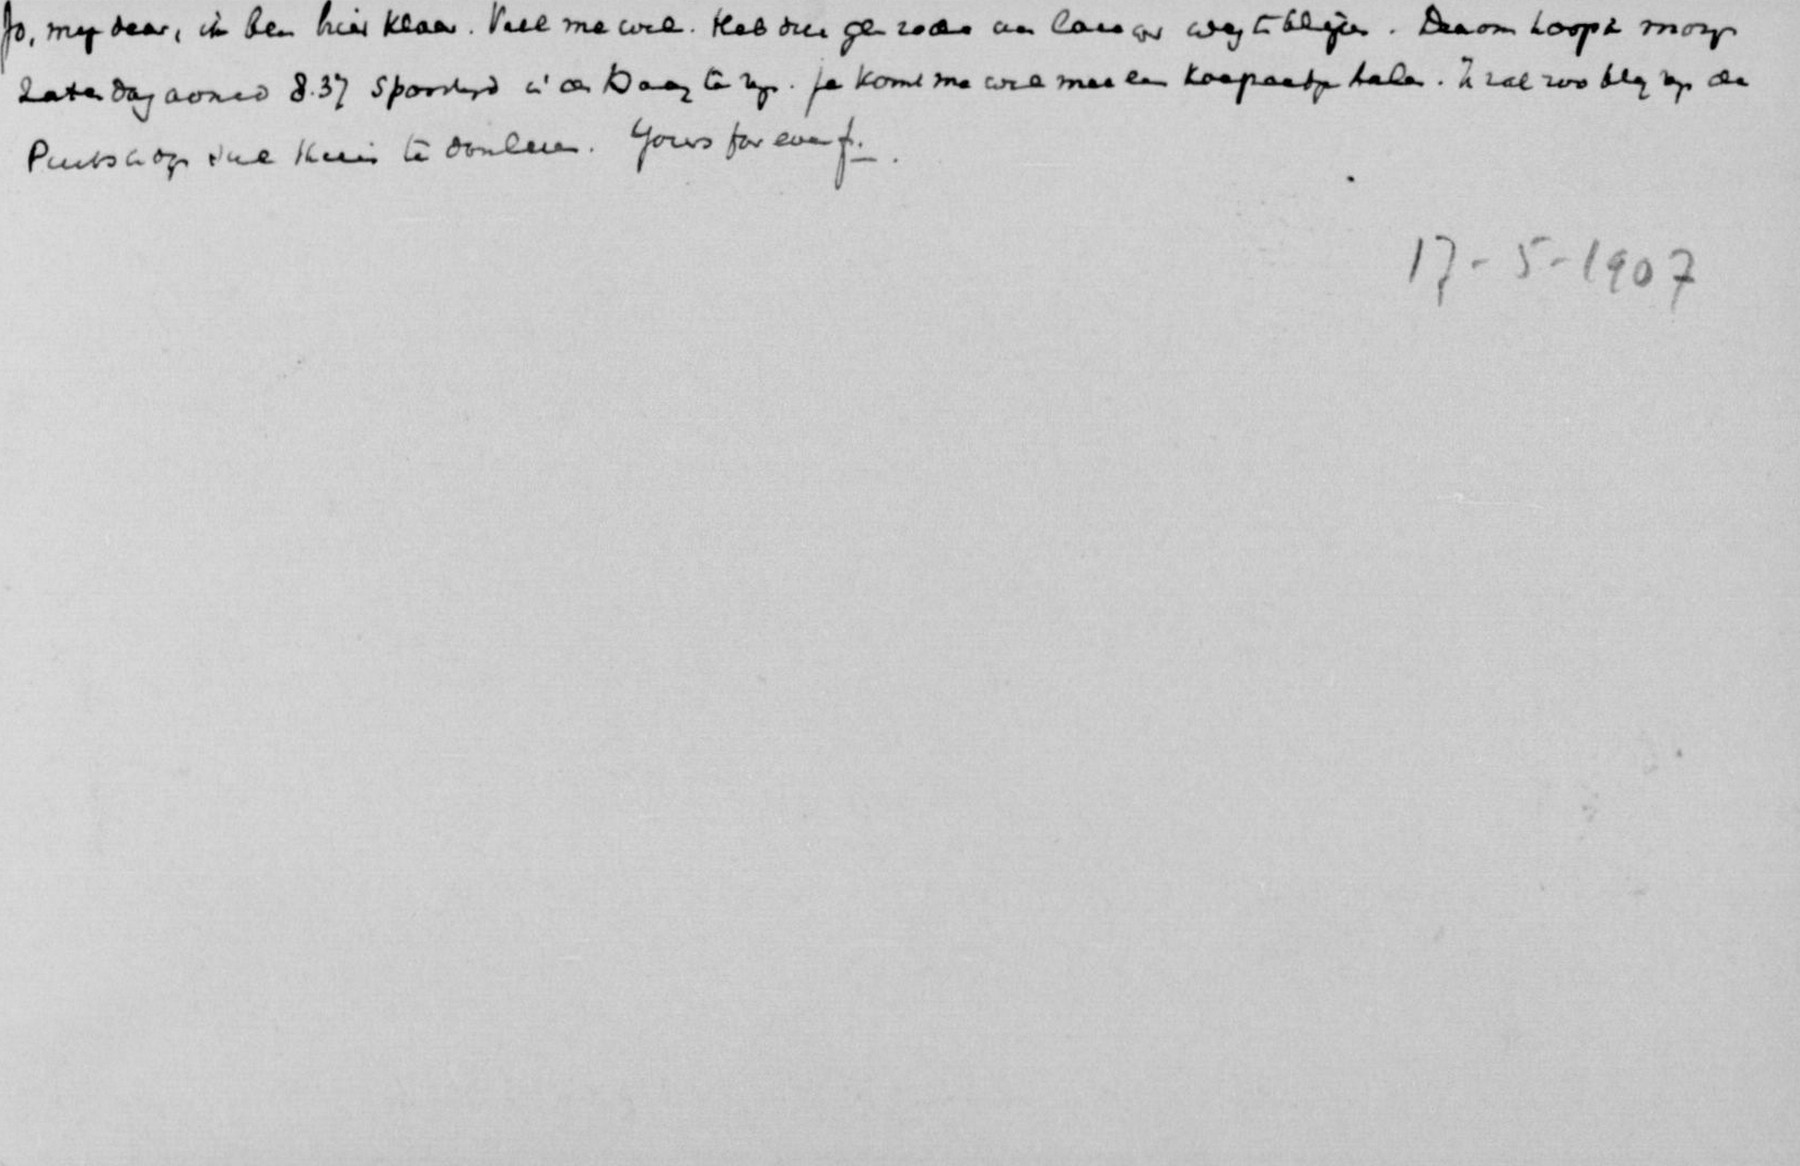 Jo, my dear, ik ben hier klaar. Veel me wel. Heb dus geen reden om langer weg te blijven. Daarom hoop ik morgen
Zaterdag avond 8.37 spoortijd in den Haag te zijn. Je komt me wel met een koopaatje halen. Ik zal zoo blij zijn de
Pinksterdagen thuis te zijn. Yours for ever f.
17-5-1907